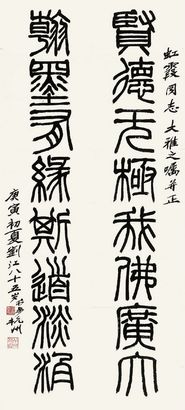 虹霞同志大雅之囑并正
賢德无極我佛廣大
翰墨有緣斯道淡泊
庚寅初夏劉江八十五岁 杭州